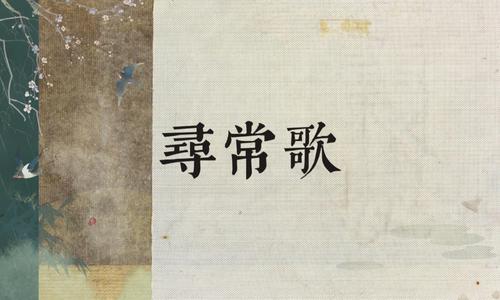 尋常歌